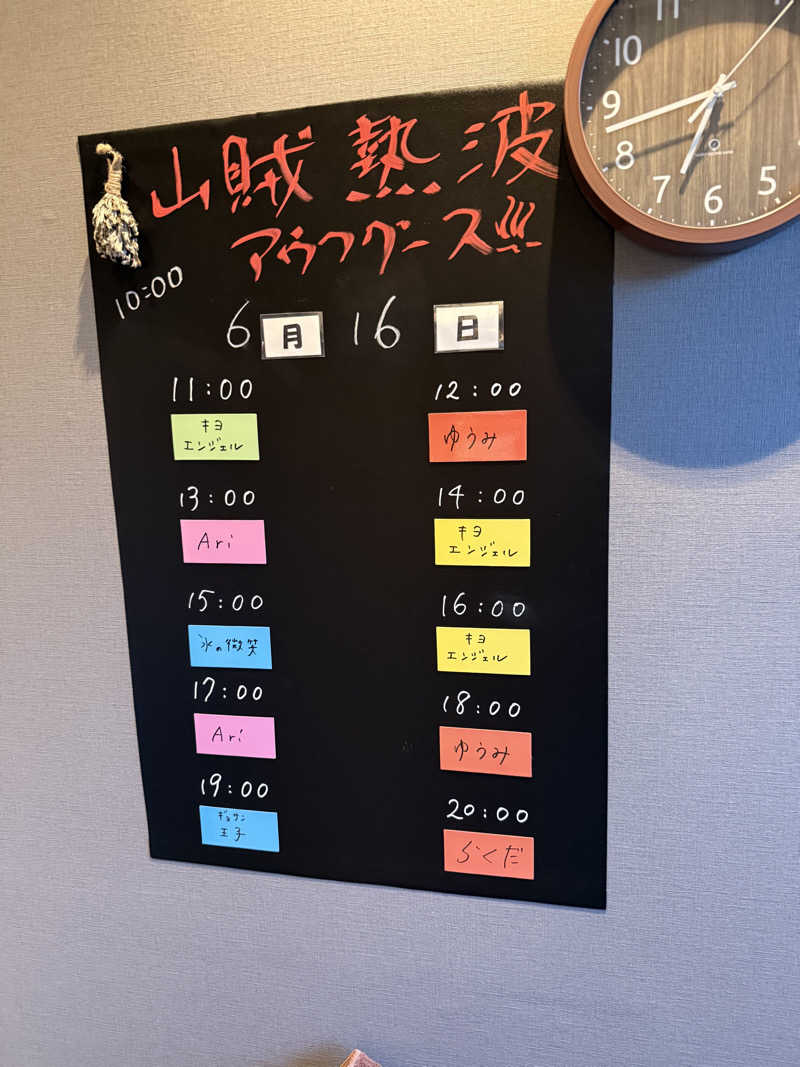 山賊 熱波
アウフグース!!!
10:00
6月16日
11:00
キヨ
エンジェル
12:00
ゆうみ
13:00
Ari
14:00
キヨ
エンジェル
15:00
氷の微笑
16:00
キヨ
エンジェル
17:00
Ari
18:00
ゆうみ
19:00
ギョサン
王子
20:00
らくだ
11
10
9
8
7
6
5